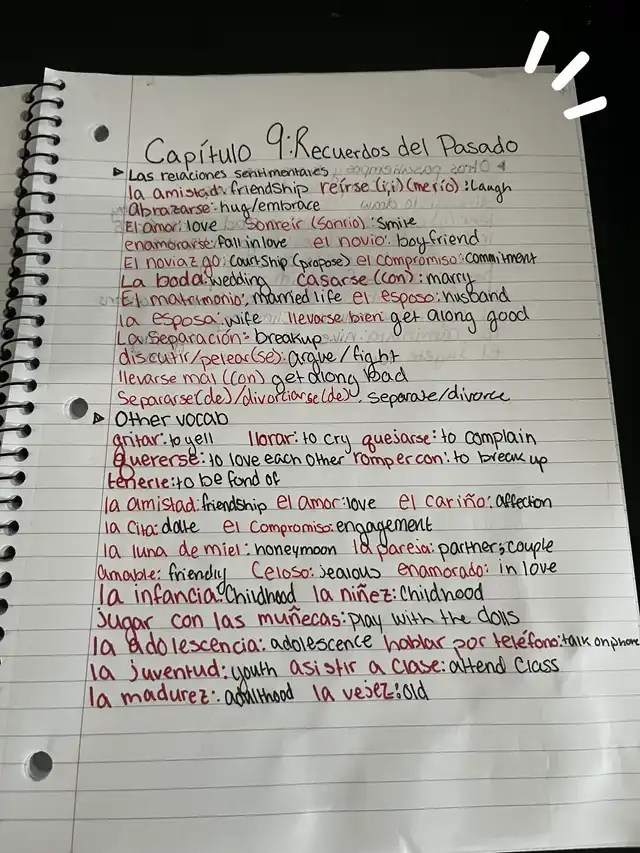 Capítulo 9: Recuerdos del Pasado
Las relaciones sentimentales
la amistad: friendship reírse (i,i) (me río): laugh
Abrazarse: hug/embrace
El amor: love sonreír (Sonrío): smile
enamorarse: fall in love el novio: boyfriend
El noviazgo: courtship (propose) el compromiso: commitment
La boda: wedding casarse (con): marry
El matrimonio: married life el esposo: husband
la esposa: wife llevarse bien: get along good
La separación: breakup
discutir/pelear(se): argue/fight
llevarse mal (con) get along bad
Separarse(de)/divortiarse(de): separate/divorce
Other vocab
gritar: to yell llorar: to cry quejarse: to complain
Quererse: to love each other romper con: to break up
tenerle: to be fond of
la amistad: friendship el amor: love el cariño: affection
la cita: date el compromiso: engagement
la luna de miel: honeymoon la pareja: partner; couple
amable: friendly Celoso: jealous enamorado: in love
la infancia: Childhood la niñez: Childhood
jugar con las muñecas: play with the dolls
la adolescencia: adolescence hablar por teléfono: talk on phone
la juventud: youth asistir a clase: attend class
la madurez: adulthood la vejez: old